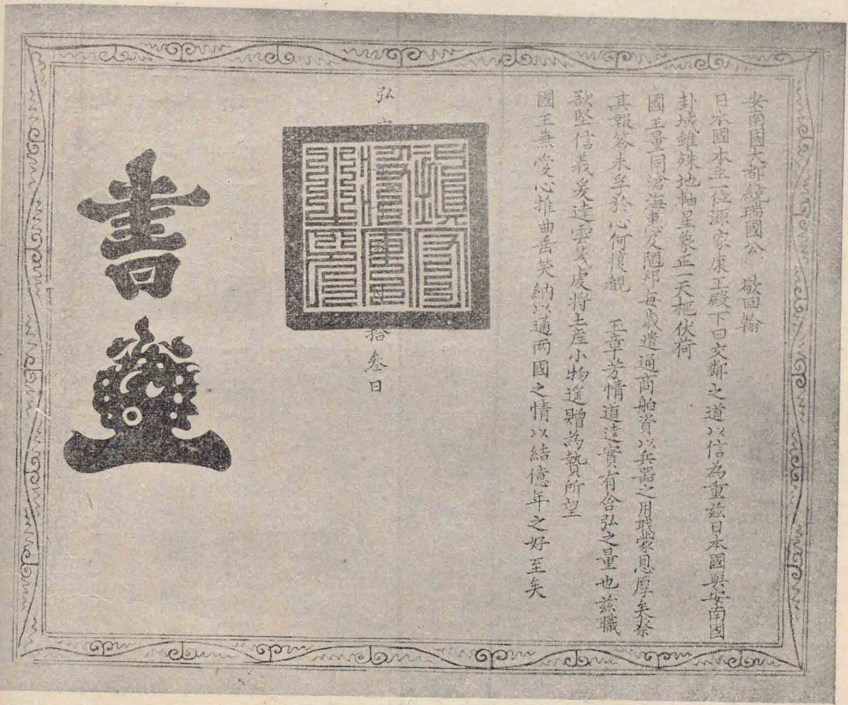 安南國大都統瑞國公 敬回翰
日本國本主一位源家康王殿下曰交鄰之道以信為重茲日本國與安南國
卦域雖殊地軸星象正一天樞伏荷
國王量同滄海惠及隨邦每歲遣通商舶資以兵器之用職蒙恩厚矣奈
其報答未孚於心何復覩 玉章芳情道達實有含弘之量也茲職
欲堅信義爰達雲箋虔將土產小物遙贈為贄所望
國王無愛心推曲岳笑納以通兩國之情以結億年之好至矣
弘
拾叁日
書